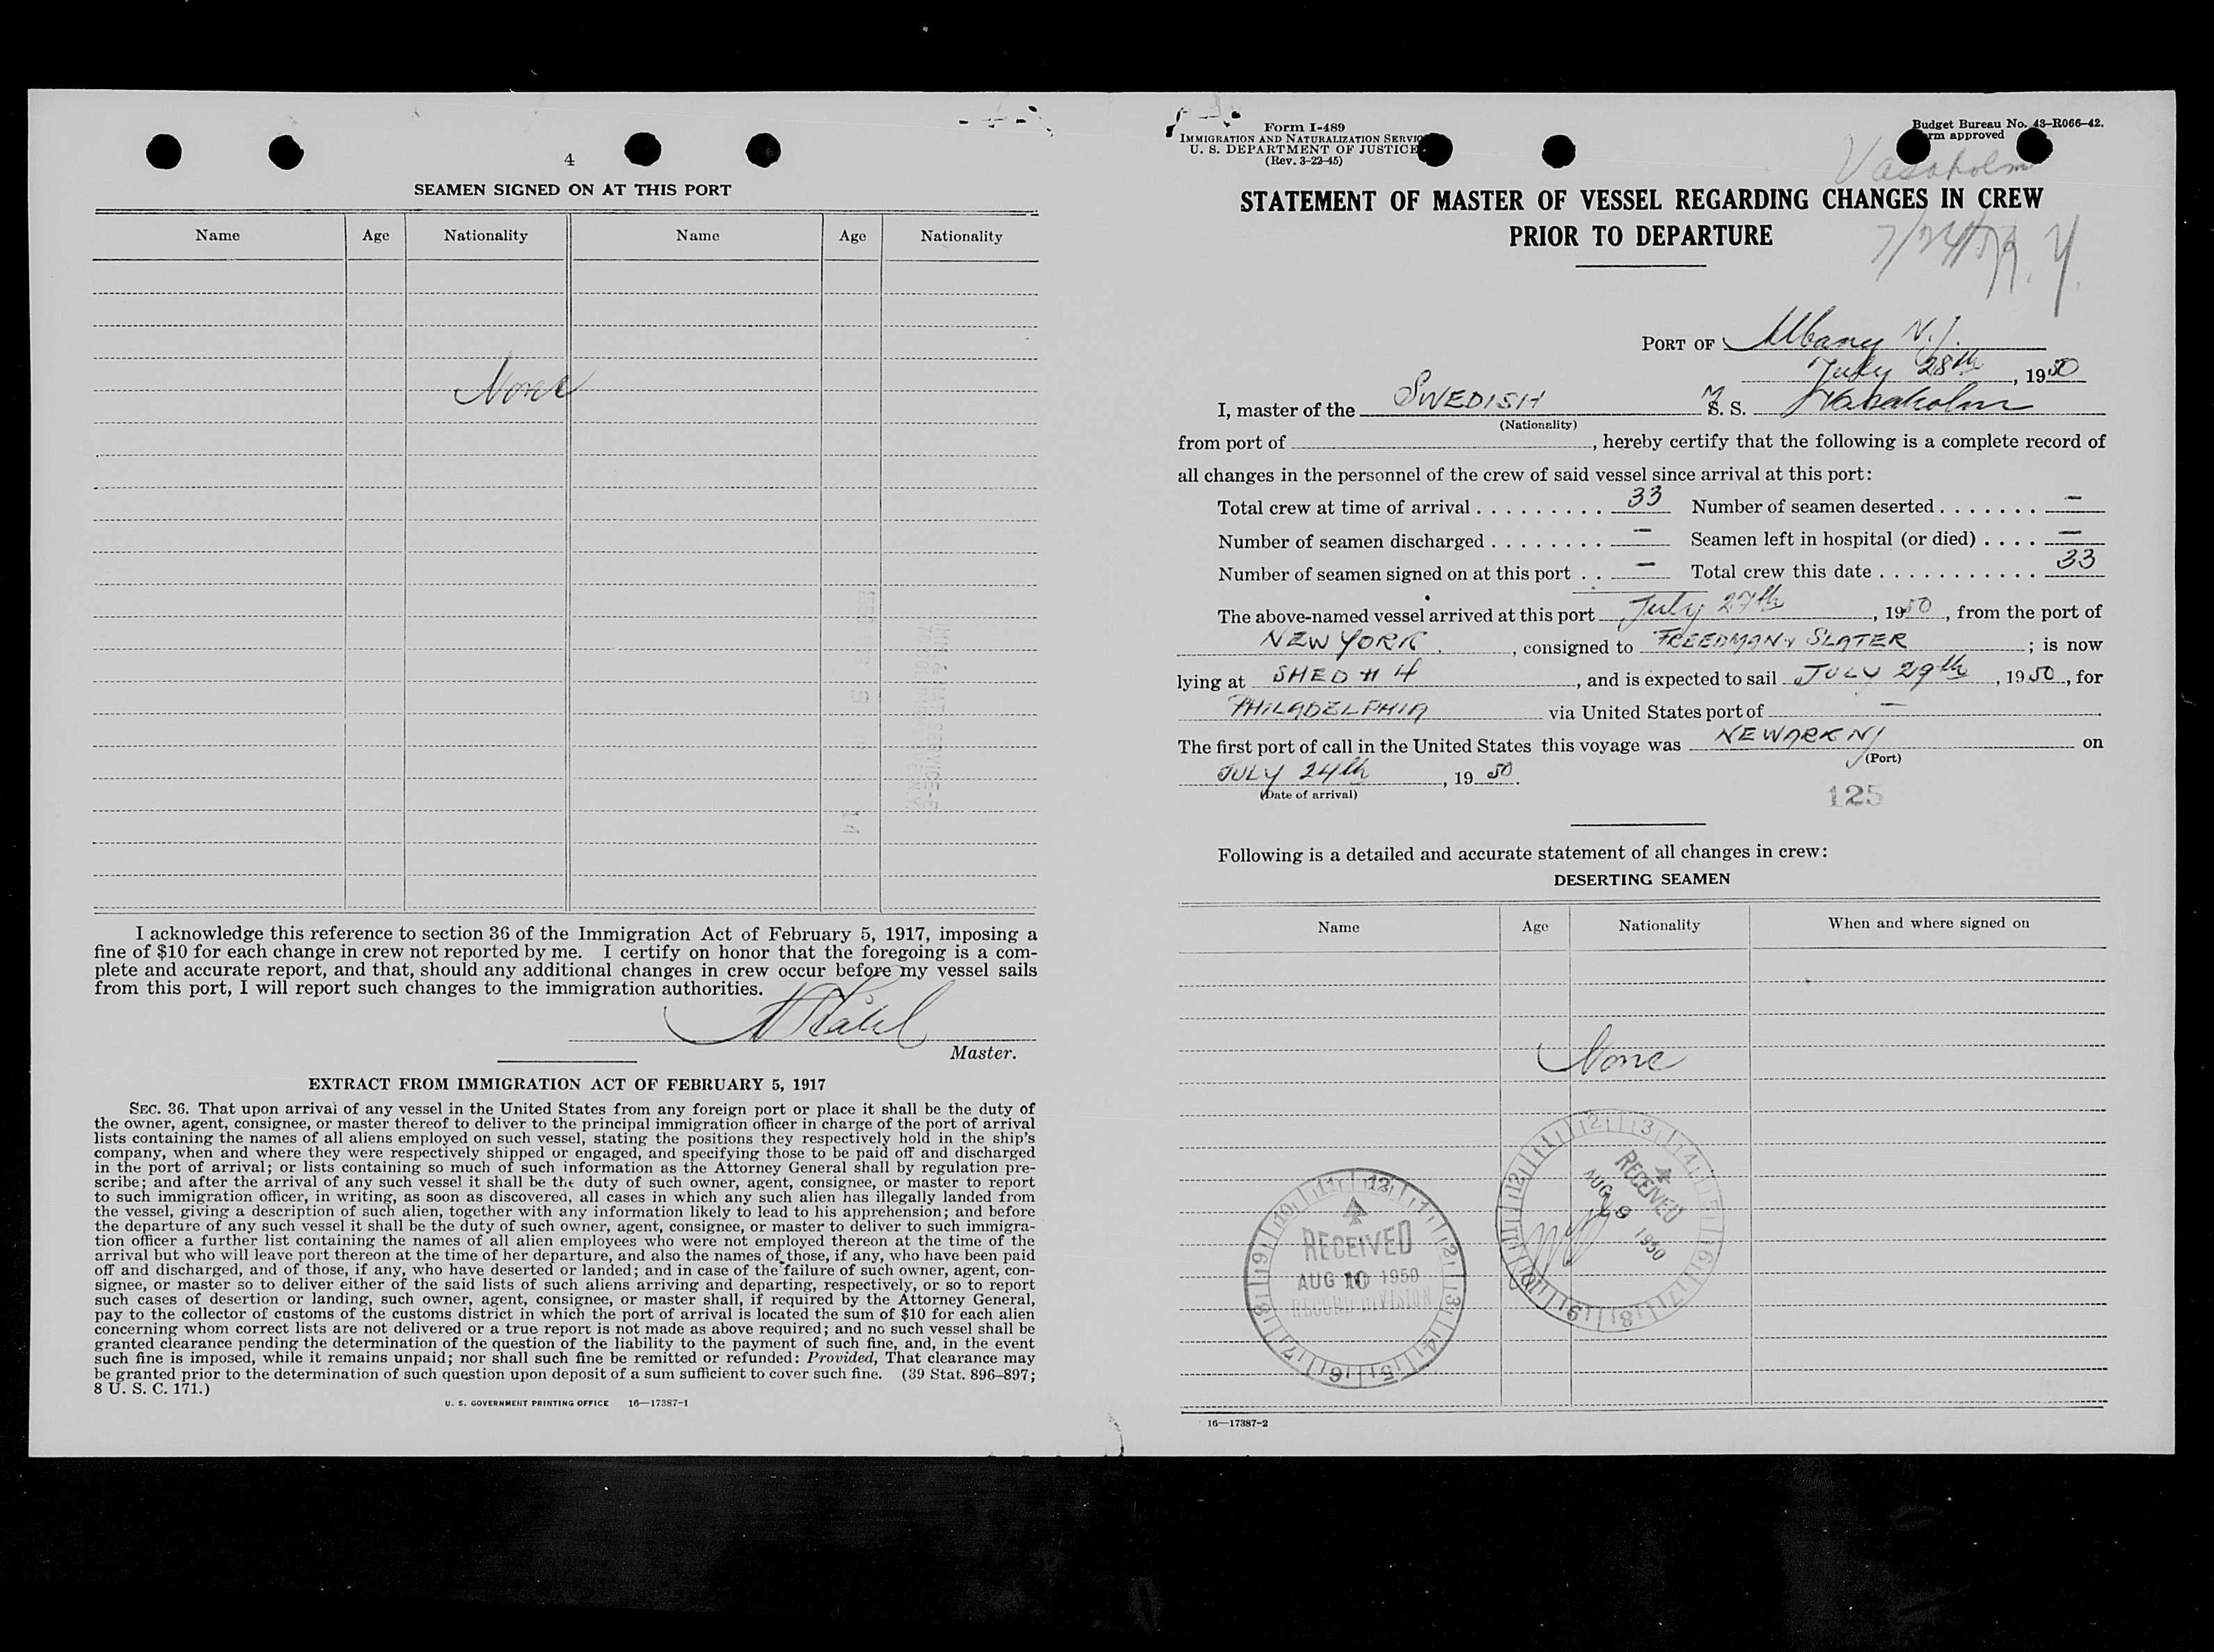 4
SEAMEN SIGNED ON AT THIS PORT
Name Age Nationality Name Age Nationality
None
I acknowledge this reference to section 36 of the Immigration Act of February 5, 1917, imposing a
fine of $10 for each change in crew not reported by me. I certify on honor that the foregoing is a com-
plete and accurate report, and that, should any additional changes in crew occur before my vessel sails
from this port, I will report such changes to the immigration authorities.
Master.
EXTRACT FROM IMMIGRATION ACT OF FEBRUARY 5, 1917
SEC. 36. That upon arrival of any vessel in the United States from any foreign port or place it shall be the duty of
the owner, agent, consignee, or master thereof to deliver to the principal immigration officer in charge of the port of arrival
lists containing the names of all aliens employed on such vessel, stating the positions they respectively hold in the ship's
company, when and where they were respectively shipped or engaged, and specifying those to be paid off and discharged
in the port of arrival; or lists containing so much of such information as the Attorney General shall by regulation pre-
scribe; and after the arrival of any such vessel it shall be the duty of such owner, agent, consignee, or master to report
to such immigration officer, in writing, as soon as discovered, all cases in which any such alien has illegally landed from
the vessel, giving a description of such alien, together with any information likely to lead to his apprehension; and before
the departure of any such vessel it shall be the duty of such owner, agent, consignee, or master to deliver to such immigra-
tion officer a further list containing the names of all alien employees who were not employed thereon at the time of the
arrival but who will leave port thereon at the time of her departure, and also the names of those, if any, who have been paid
off and discharged, and of those, if any, who have deserted or landed; and in case of the failure of such owner, agent, con-
signee, or master so to deliver either of the said lists of such aliens arriving and departing, respectively, or so to report
such cases of desertion or landing, such owner, agent, consignee, or master shall, if required by the Attorney General,
pay to the collector of customs of the customs district in which the port of arrival is located the sum of $10 for each alien
concerning whom correct lists are not delivered or a true report is not made as above required; and no such vessel shall be
granted clearance pending the determination of the question of the liability to the payment of such fine, and, in the event
such fine is imposed, while it remains unpaid; nor shall such fine be remitted or refunded: Provided, That clearance may
be granted prior to the determination of such question upon deposit of a sum sufficient to cover such fine. (39 Stat. 896–897;
8 U. S. C. 171.)
U. S. GOVERNMENT PRINTING OFFICE 16—17387-1
Form I-489
IMMIGRATION AND NATURALIZATION SERVIC
U. S. DEPARTMENT OF JUSTICE
(Rev. 3-22-45)
Budget Bureau No. 43-R066-42.
rm approved
Vasaholm
STATEMENT OF MASTER OF VESSEL REGARDING CHANGES IN CREW
PRIOR TO DEPARTURE
7/24/50 N.Y.
PORT OF Albany N.Y.
July 28th, 1950
I, master of the SWEDISH M. S. Vasaholm
(Nationality)
from port of , hereby certify that the following is a complete record of
all changes in the personnel of the crew of said vessel since arrival at this port:
Total crew at time of arrival . . . . . . . . . . 33 Number of seamen deserted . . . . . . . —
Number of seamen discharged . . . . . . . . — Seamen left in hospital (or died) . . . . —
Number of seamen signed on at this port . . — Total crew this date . . . . . . . . . . . . 33
The above-named vessel arrived at this port July 27th, 1950, from the port of
NEW YORK., consigned to FREEDMAN & SLATER; is now
lying at SHED # 4, and is expected to sail JULY 29th, 1950, for
PHILADELPHIA via United States port of —
The first port of call in the United States this voyage was NEWARK NJ on
(Port)
JULY 24th, 19 50.
(Date of arrival)
125
Following is a detailed and accurate statement of all changes in crew:
DESERTING SEAMEN
Name Age Nationality When and where signed on
None
RECEIVED
AUG 9 1950
RECEIVED
AUG 10 1950
RECORD DIVISION
16—17387-2